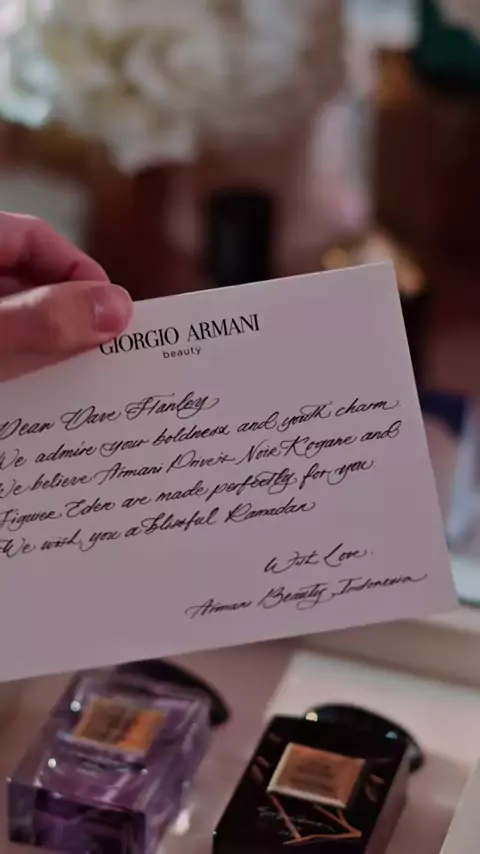 GIORGIO ARMANI
beauty
Dear Dave Hanley
We admire your boldness and youth charm
We believe Armani Privé's Noir Kogane and
Figuier Eden are made perfectly for you
We wish you a blissful Ramadan
With Love.
Armani Beauty, Indonesia